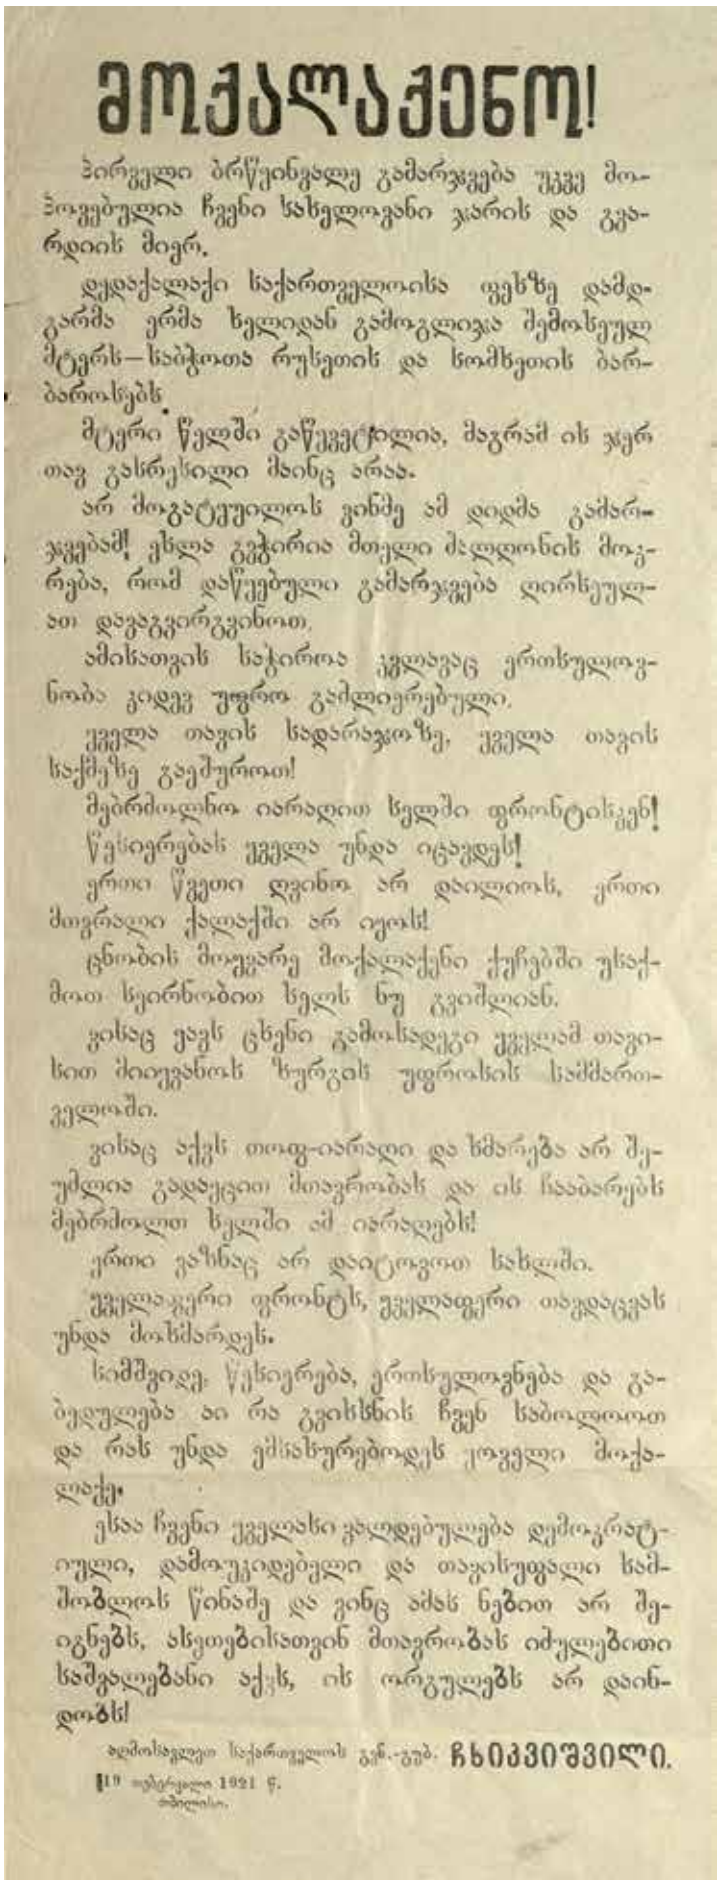 მოქალაქენო!
პირველი ბრწყინვალე გამარჯვება უკვე მო-
პოვებულია ჩვენი სახელოვანი ჯარის და გვა-
რდიის მიერ.
დედაქალაქი საქართველოისა ფეხზე დამდ-
გარმა ერმა ხელიდან გამოგლიჯა შემოსეულ
მტერს—საბჭოთა რუსეთის და სომხეთის ბარ-
ბაროსებს.
მტერი წელში გაწყვეტილია, მაგრამ ის ჯერ
თავ გასრესილი მაინც არაა.
არ მოგატყუილოს ვინმე ამ დიდმა გამარ-
ჯვებამ! ეხლა გვჭირია მთელი ძალღონის მოკ-
რება, რომ დაწყებული გამარჯვება ღირსეულ-
ათ დავაგვირგვინოთ.
ამისათვის საჭიროა კვლავაც ერთსულოვ-
ნობა კიდევ უფრო გაძლიერებული.
ყველა თავის სადარაჯოზე, ყველა თავის
საქმეზე გაეშუროთ!
მებრძოლნო იარაღით ხელში ფრონტისკენ!
წესიერებას ყველა უნდა იცავდეს!
ერთი წვეთი ღვინო არ დაილიოს, ერთი
მთვრალი ქალაქში არ იყოს!
ცნობის მოყვარე მოქალაქენი ქუჩებში უსაქ-
მოთ სეირნობით ხელს ნუ გვიშლიან.
ვისაც ყავს ცხენი გამოსადეგი ყველამ თავი-
სით მიიყვანოს ზურგის უფროსის სამმართ-
ველოში.
ვისაც აქვს თოფ-იარაღი და ხმარება არ შე-
უძლია გადაეცით მთავრობას და ის ჩააბარებს
მებრძოლთ ხელში ამ იარაღებს!
ერთი ვაზნაც არ დაიტოვოთ სახლში.
ყველაფერი ფრონტს, ყველაფერი თავდაცვას
უნდა მოხმარდეს.
სიმშვიდე, წესიერება, ერთსულოვნება და გა-
ბედულება აი რა გვიხსნის ჩვენ საბოლოოთ
და რას უნდა ემსახურებოდეს ყოველი მოქა-
ლაქე.
ესაა ჩვენი ყველასი ვალდებულება დემოკრატ-
იული, დამოუკიდებელი და თავისუფალი სამ-
შობლოს წინაშე და ვინც ამას ნებით არ შე-
იგნებს, ასეთებისათვინ მთავრობას იძულებითი
საშვალებანი აქვს, ის ორგულებს არ დაინ-
დობს!
აღმოსავლეთ საქართველოს გენ.-გუბ. ჩხიკვიშვილი.
19 თებერვალი 1921 წ.
თბილისი.